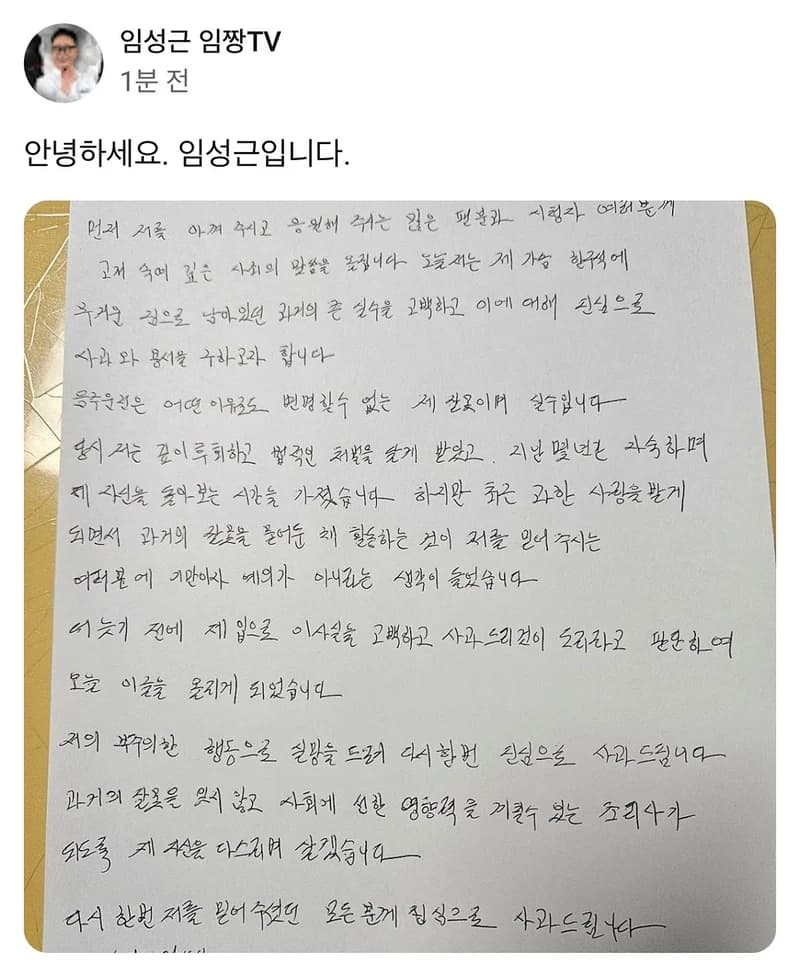 임성근 임짱TV
1분 전
안녕하세요. 임성근입니다.
먼저 저를 아껴 주시고 응원해 주시는 많은 팬분과 시청자 여러분께
고개 숙여 깊은 사죄의 말씀을 올립니다 오늘 저는 제 가슴 한구석에
무거운 짐으로 남아있던 과거의 큰 실수을 고백하고 이에 대해 진심으로
사과와 용서를 구하고자 합니다
음주운전은 어떤 이유로도 변명할수 없는 제 잘못이며 실수입니다
당시 저는 깊이 후회하고 법적인 처벌을 달게 받았고. 지난 몇 년간 자숙하며
제 자신을 돌아보는 시간을 가졌습니다 하지만 최근 과한 사랑을 받게
되면서 과거의 잘못을 묻어둔 채 활동하는 것이 저를 믿어 주시는
여러분에 기만이자 예의가 아니라는 생각이 들었습니다
더 늦기 전에 제 입으로 이사실을 고백하고 사과드리것이 도리라고 판단하여
오늘 이글을 올리게 되었습니다
저의 부주의한 행동으로 실망을 드려 다시한번 진심으로 사과드립니다
과거의 잘못을 잊지 않고 사회에 선한 영향력을 끼칠수 있는 조리사가
되도록 제 자신을 다스리며 살겠습니다
다시 한번 저를 믿어 주셨던 모든 분께 진심으로 사과드립니다